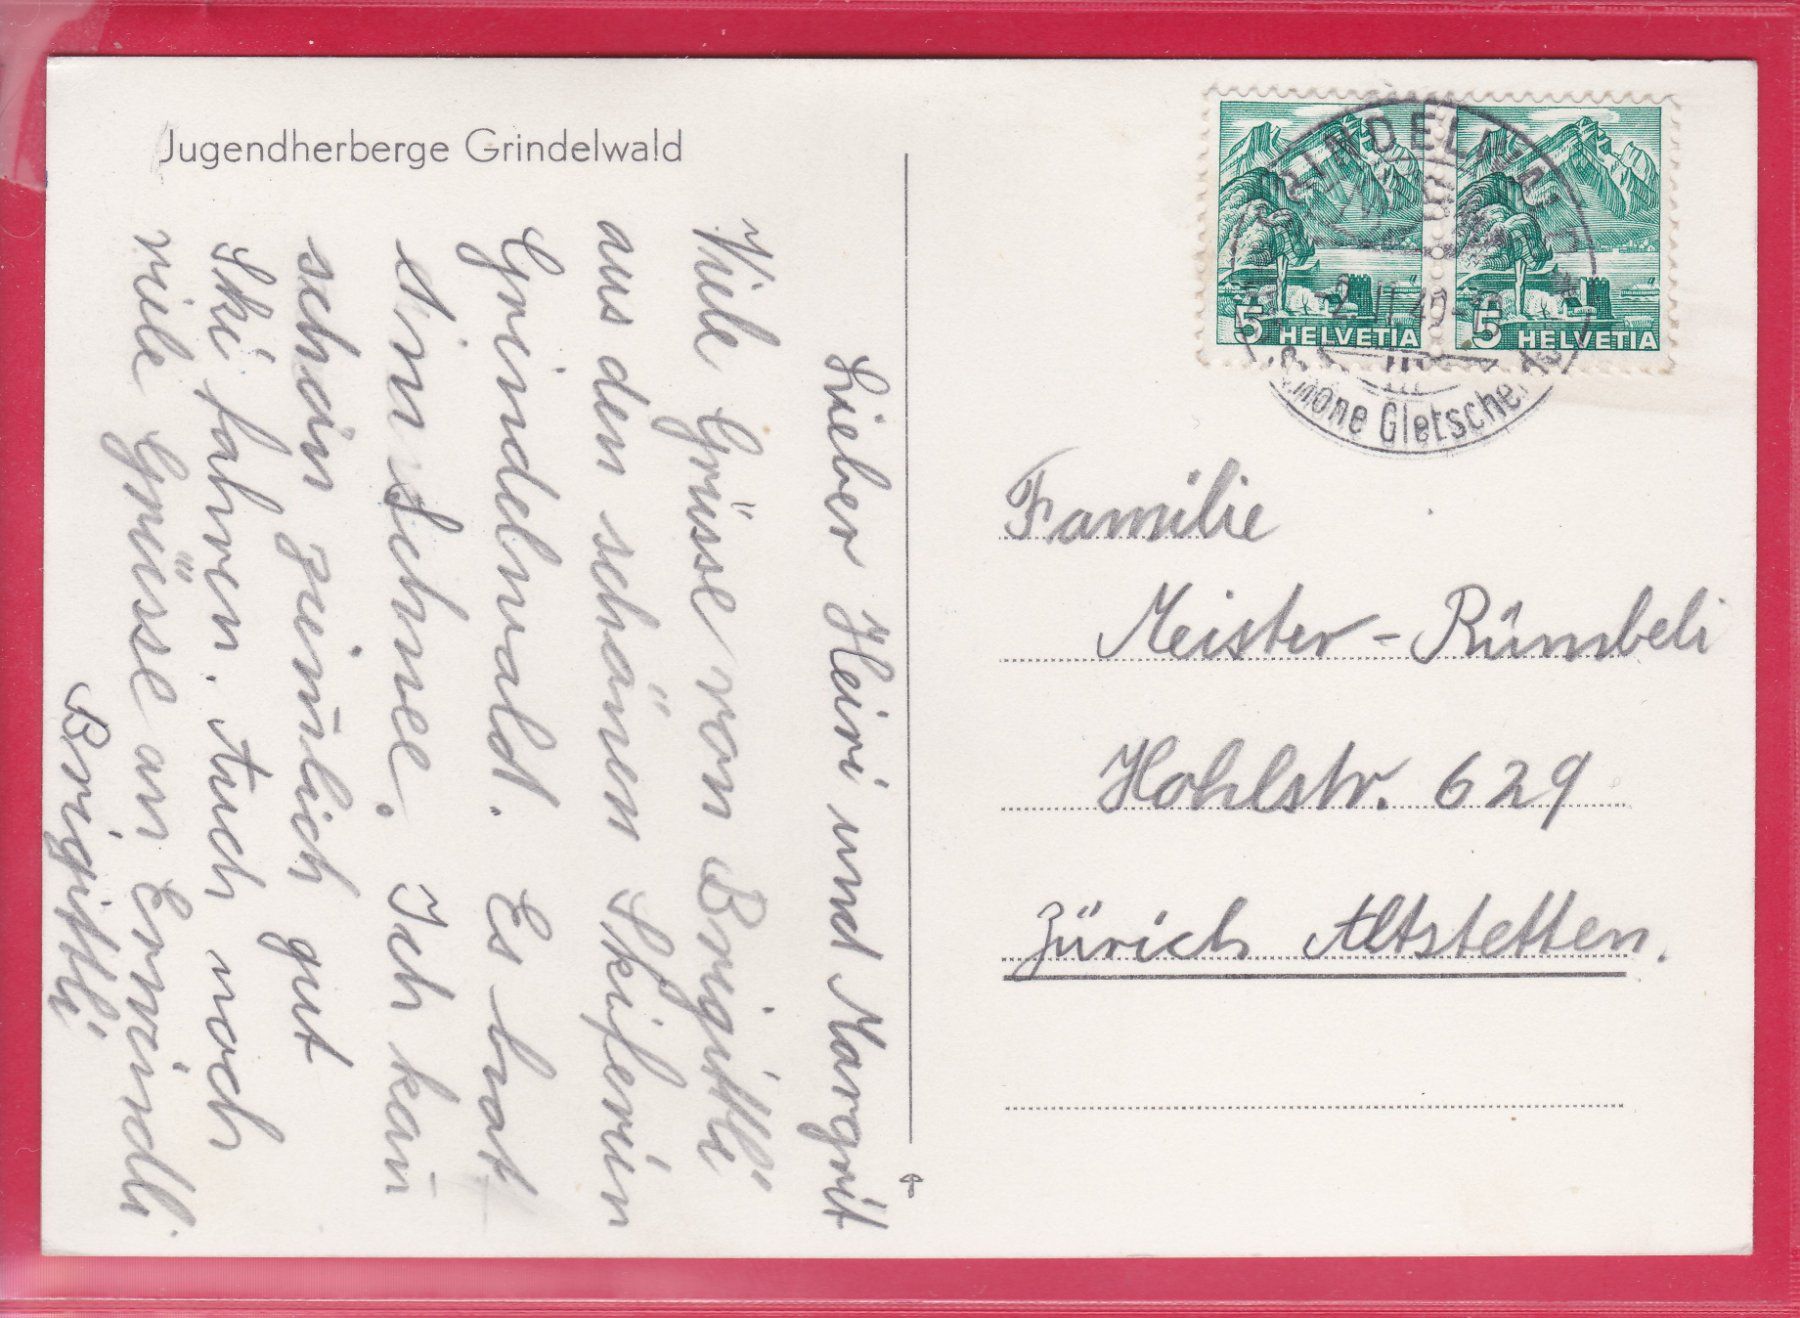 Jugendherberge Grindelwald
Lieber Heiri und Margrit
Viele Grüsse von Brigittli
aus den schönen Skiferien
Grindelwald. Es hat
Schnee. Ich kan̄
schon zieml̄ich gut
Ski fahren. Auch noch
viele Grüsse an Erwindli
Brigittli
GRINDELWALD
5 HELVETIA
5 HELVETIA
Familie
Meister - Rümbeli
Hohlstr. 629
Zürich Altstetten.